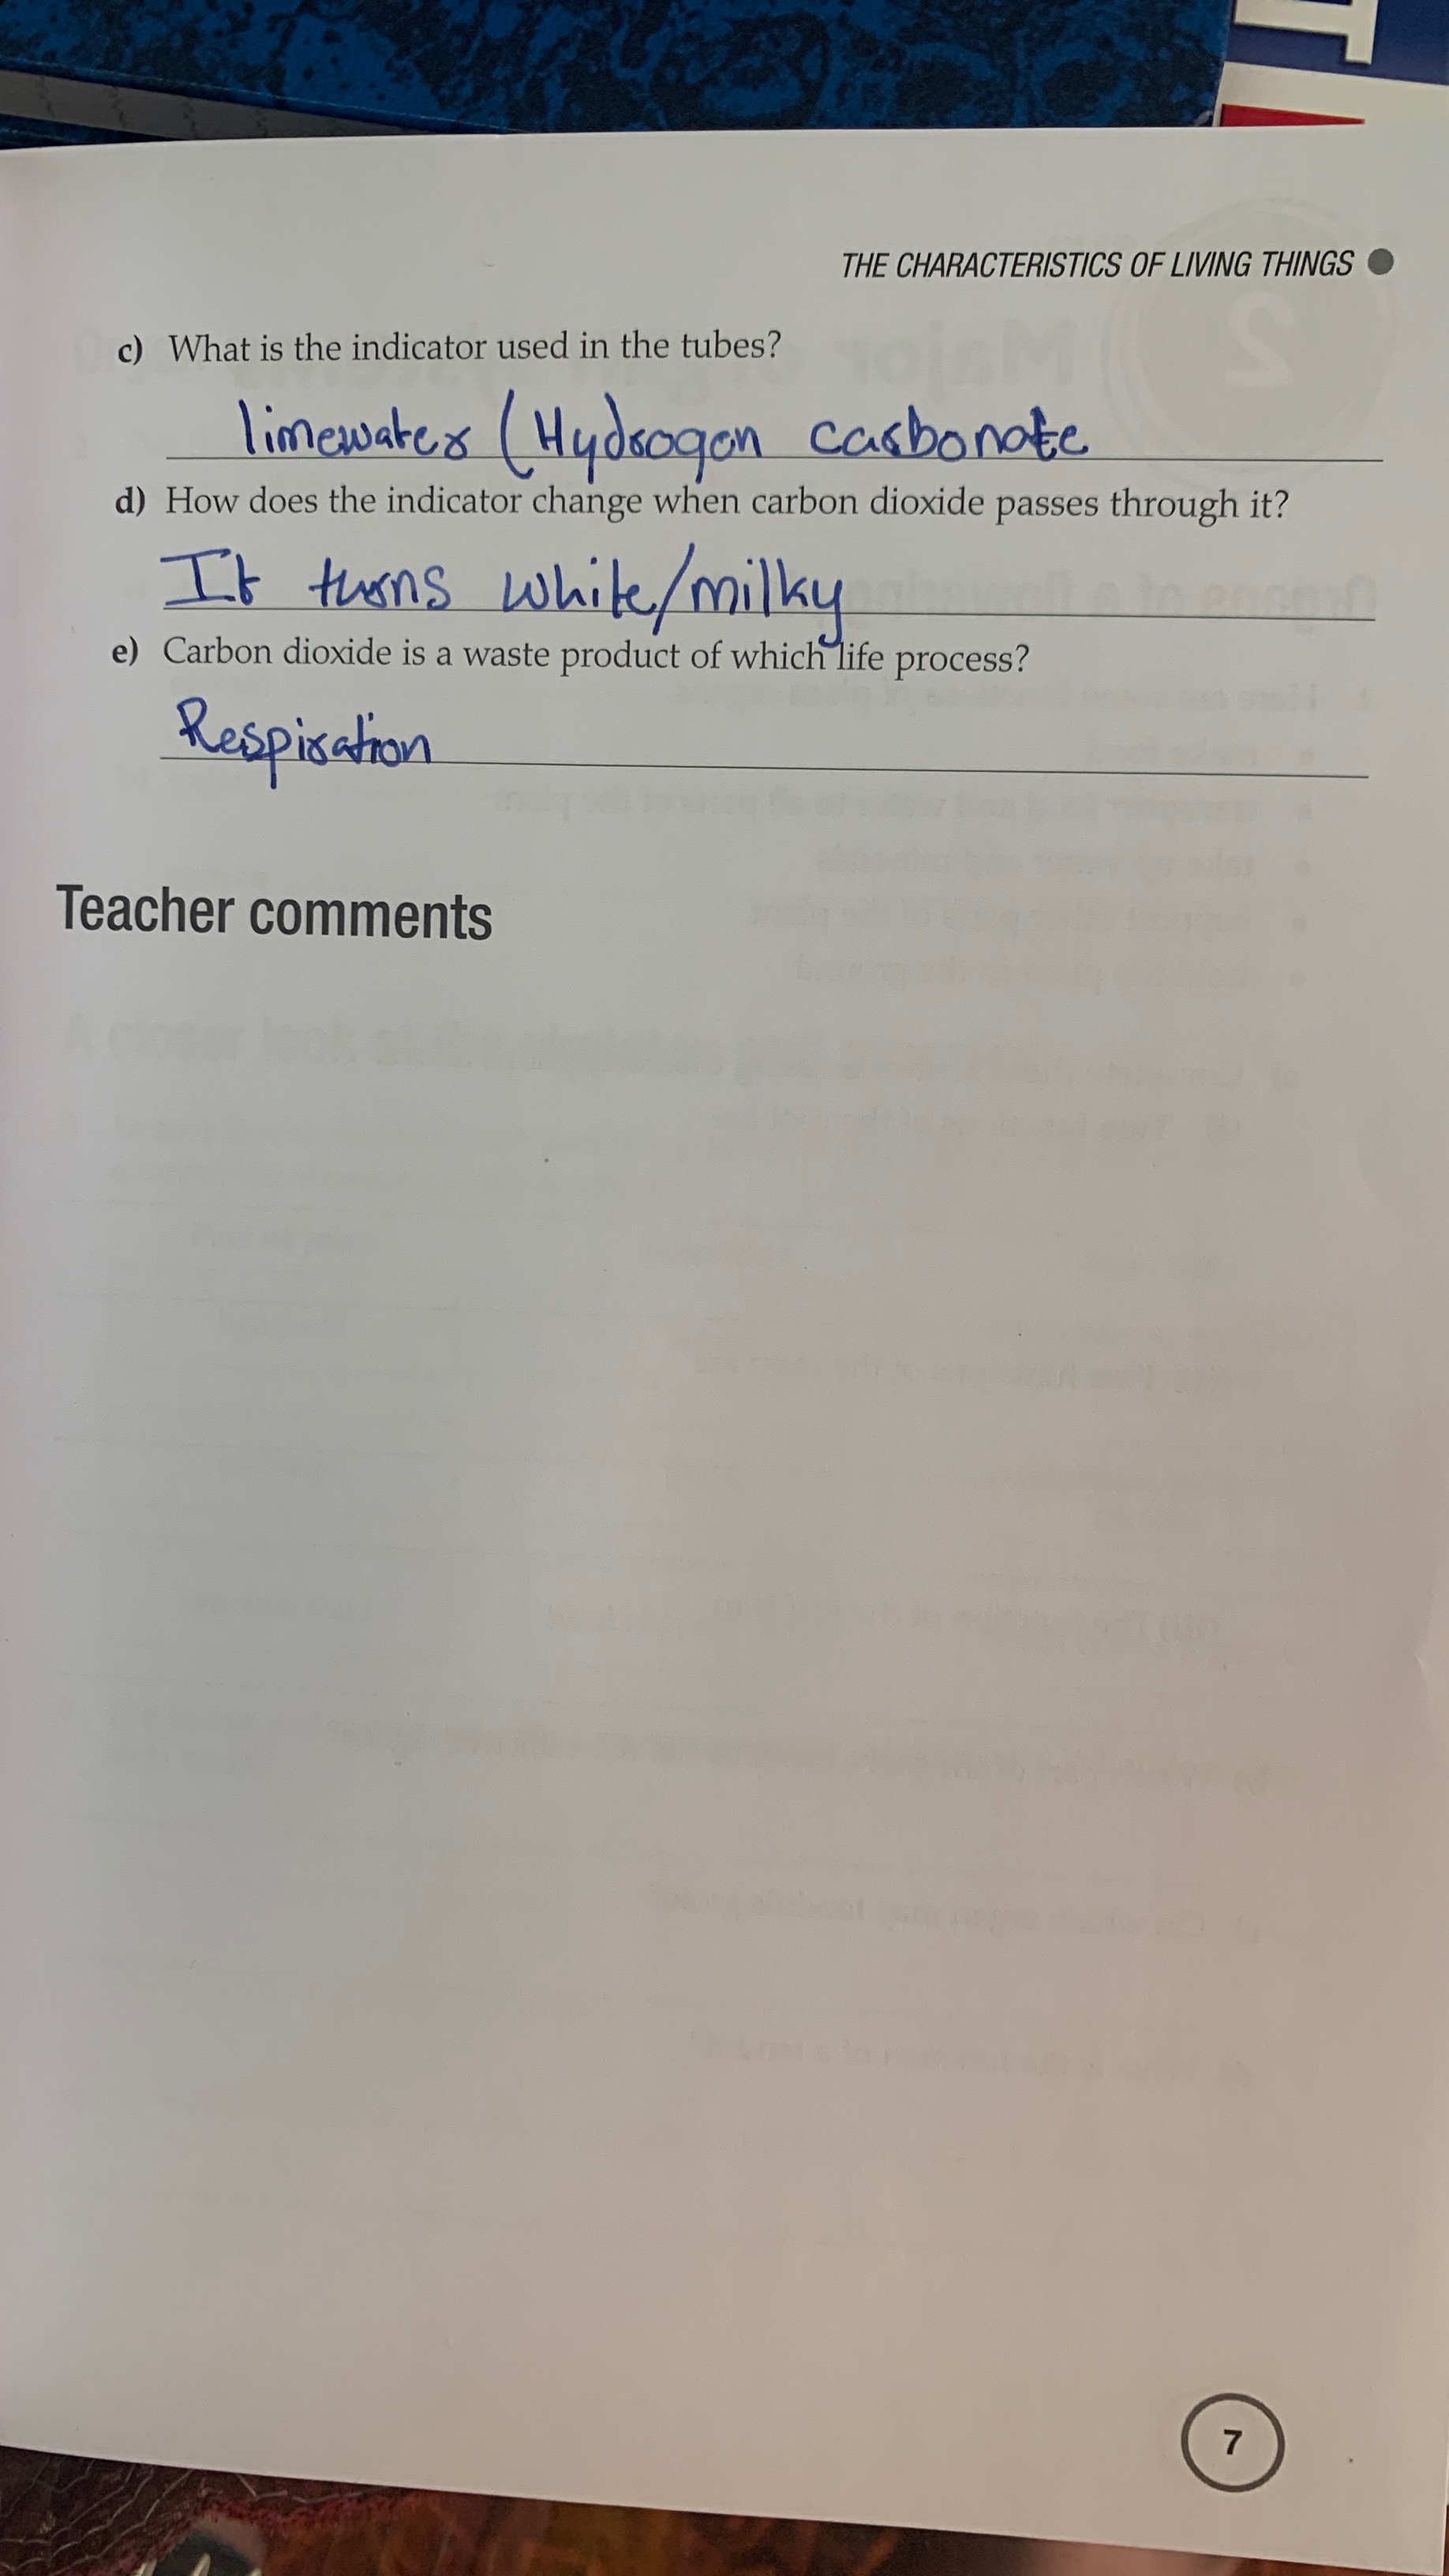 THE CHARACTERISTICS OF LIVING THINGS
c) What is the indicator used in the tubes?
limewater (Hydrogen carbonate
d) How does the indicator change when carbon dioxide passes through it?
It turns white/milky
e) Carbon dioxide is a waste product of which life process?
Respiration
Teacher comments
7